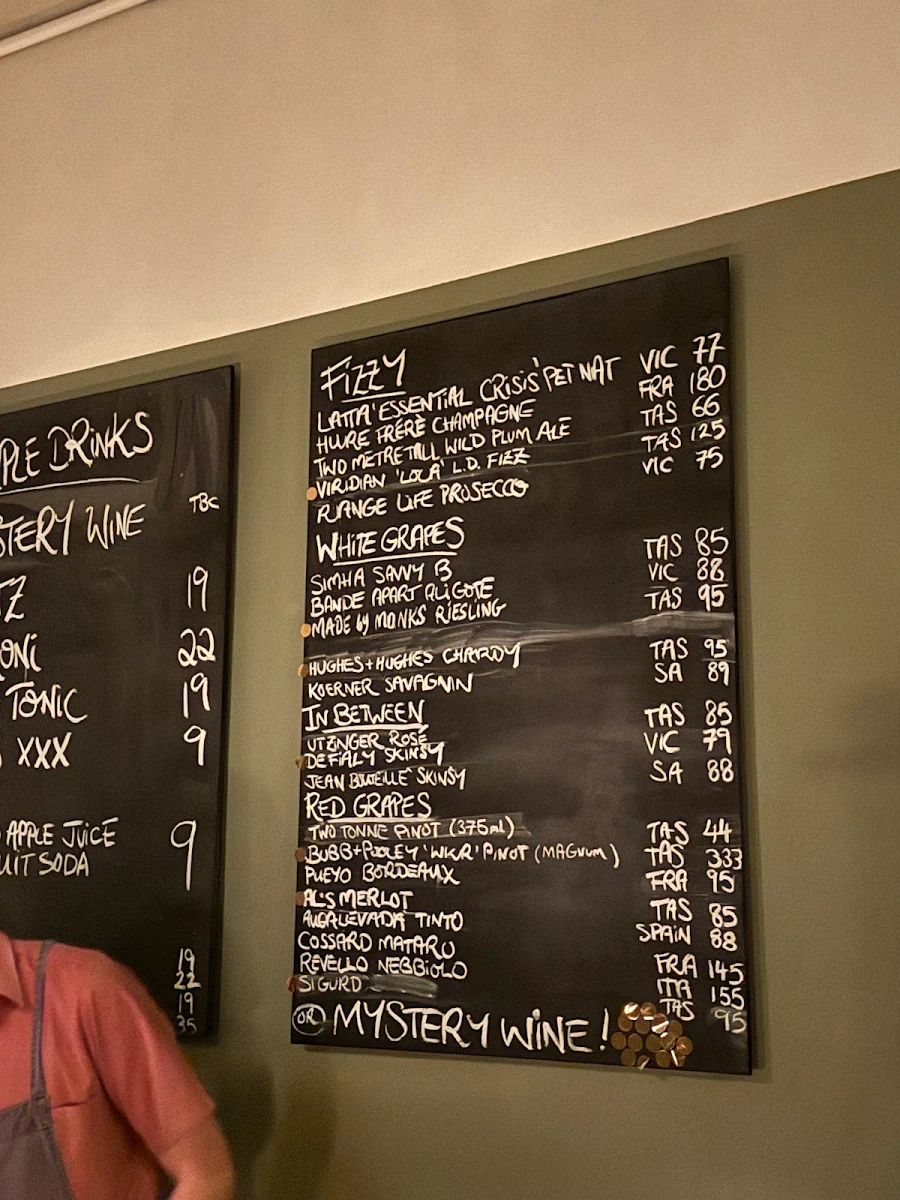 PLE DRINKS
STERY WINE TBC
TZ 19
ONI 22
TONIC 19
XXX 9
APPLE JUICE 9
UIT SODA
19
22
19
35
FIZZY
LATTA 'ESSENTIAL CRISIS' PET NAT VIC 77
HURE FRÈRE CHAMPAGNE FRA 180
TWO METRE TALL WILD PLUM ALE TAS 66
VIRIDIAN 'LOLA' L.D. FIZZ TAS 125
RANGE LIFE PROSECCO VIC 75
WHITE GRAPES
SIMHA SAVVY B TAS 85
BANDE APART ALIGOTE VIC 88
MADE by MONKS RIESLING TAS 95
HUGHES+HUGHES CHARDY TAS 95
KOERNER SAVAGNIN SA 89
IN BETWEEN
UTZINGER ROSÉ TAS 85
DEFIALY SKINSY VIC 79
JEAN BOUTEILLE SKINSY SA 88
RED GRAPES
TWO TONNE PINOT (375mL) TAS 44
BUBB+POOLEY 'WKR' PINOT (MAGNUM) TAS 333
PUEYO BORDEAUX FRA 95
AL'S MERLOT TAS 85
AUGALEVADA TINTO SPAIN 88
COSSARD MATARO FRA 145
REVELLO NEBBIOLO ITA 155
SIGURD TAS 95
OR MYSTERY WINE!